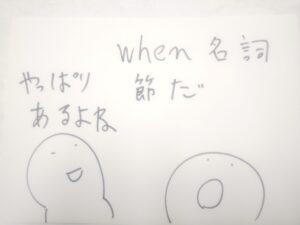 when 名詞
節だ
やっぱり
あるよね